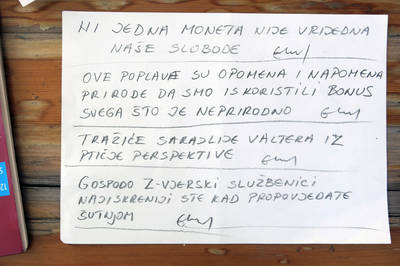 NI JEDNA MONETA NIJE VRIJEDNA
NAŠE SLOBODE
OVE POPLAVE SU OPOMENA I NAPOMENA
PRIRODE DA SMO ISKORISTILI BONUS
SVEGA ŠTO JE NEPRIRODNO
TRAŽIĆE SARAJLIJE VALTERA IZ
PTIČJE PERSPEKTIVE
GOSPODO Z-VJERSKI SLUŽBENICI
NAJISKRENIJI STE KAD PROPOVJEDATE
ŠUTNJOM